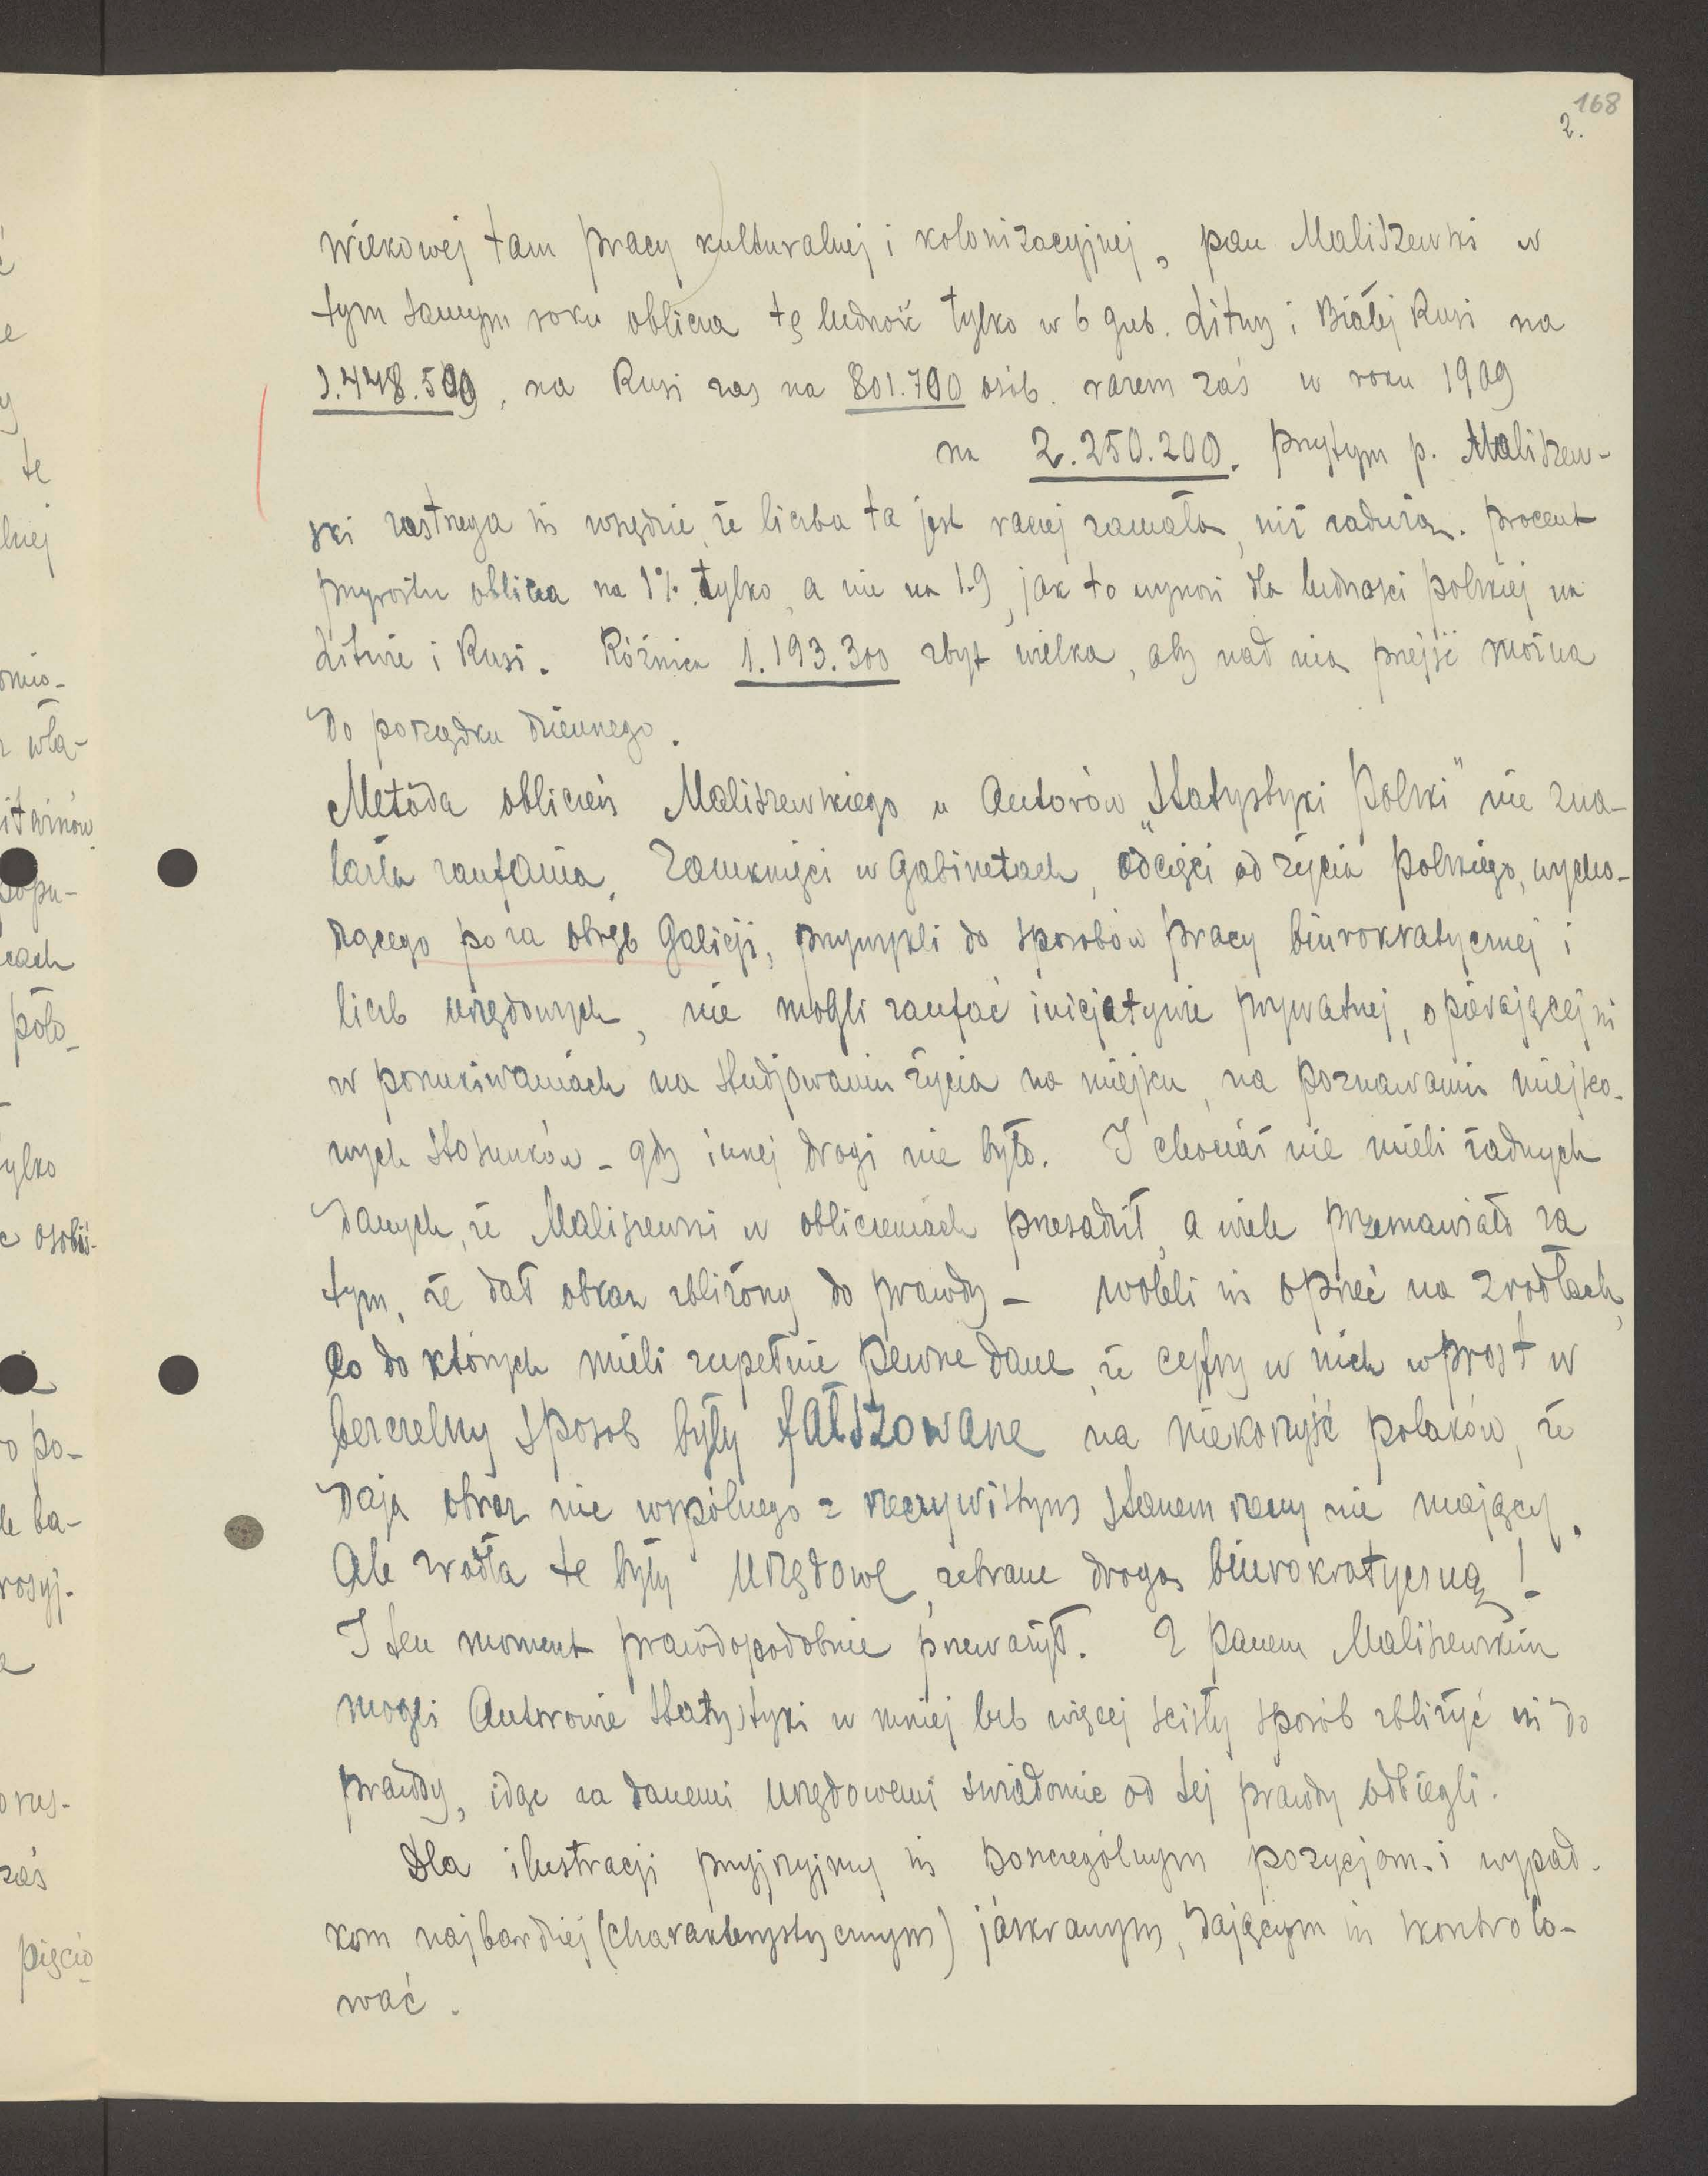 168
2.
wiekowej tam pracy kulturalnej i kolonizacyjnej, pan Maliszewski w
tym samym roku oblicza tę ludność tylko w 6 gub. Litwy i Białej Rusi na
1.448.500, na Rusi zaś na 801.700 osób. razem zaś w roku 1909
na 2.250.200. przytym p. Maliszew-
ski zastrzega się wszędzie, że liczba ta jest raczej zamała, niż zaduża. procent
przyrostu oblicza na 1% tylko, a nie na 1.9, jak to wynosi dla ludności polskiej na
Litwie i Rusi. Różnica 1.193.300 zbyt wielka, aby nad nią przejść można
do porządku dziennego.
Metoda obliczeń Maliszewskiego u Autorów „Statystyki Polski" nie zna-
lazła zaufania. Zamknięci w Gabinetach, odcięci od życia polskiego, wycho-
dzącego poza obręb Galicji, przywykli do sposobów pracy biurokratycznej i
liczb urzędowych, nie mogli zaufać inicjatywie prywatnej, opierającej się
w poszukiwaniach na studjowaniu życia na miejscu, na poznawaniu miejsco-
wych stosunków - gdy innej drogi nie było. I chociaż nie mieli żadnych
danych, że Maliszewski w obliczeniach przesadził, a wiele przemawiało za
tym, że dał obraz zbliżony do prawdy - woleli się oprzeć na źródłach,
co do których mieli zupełnie pewne dane, że cyfry w nich wprost w
bezczelny sposób były fałszowane na niekorzyść polaków, że
dają obraz nic wspólnego z rzeczywistym stanem rzeczy nie mający.
Ale źródła te były urzędowe, zebrane drogą biurokratyczną!
I ten moment prawdopodobnie przeważył. Z panem Maliszewskim
mogli Autorowie Statystyki w mniej lub więcej ścisły sposób zbliżyć się do
prawdy, idąc za danemi urzędowemi świadomie od tej prawdy odbiegli.
Dla ilustracji przyjrzyjmy się poszczególnym pozycjom i wypad-
kom najbardziej (charakterystycznym) jaskrawym, dającym się skontrolo-
wać.